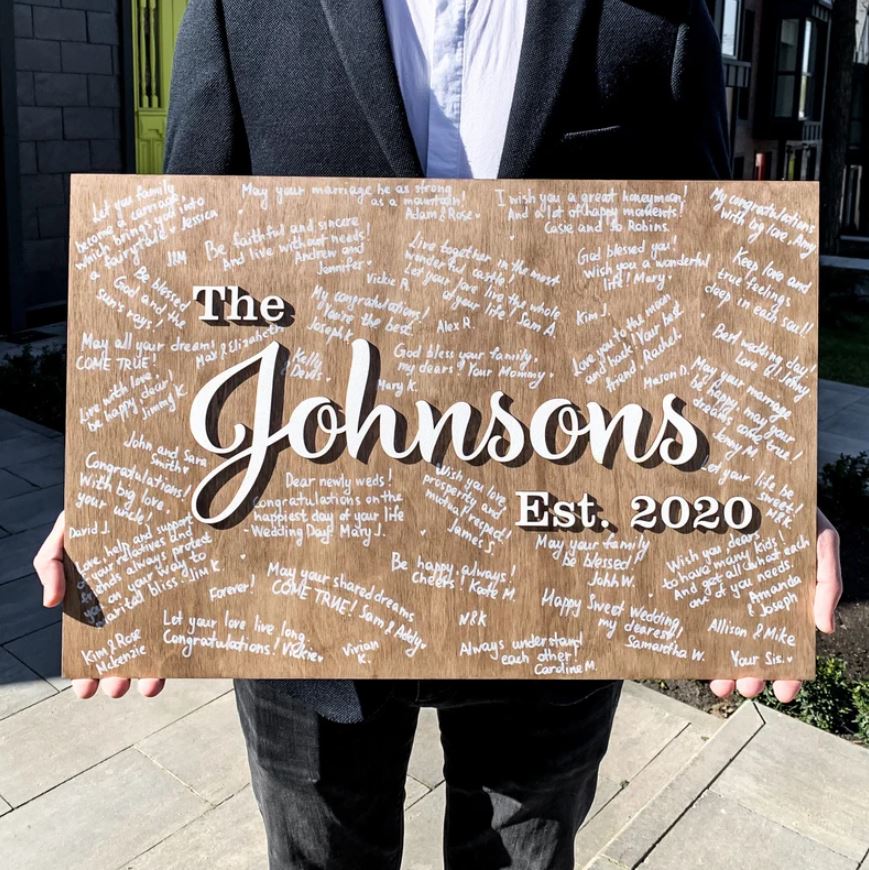 Let you family
become a carriage,
which brings you into
a fairytale! Jessica
May your marriage be as strong
as a mountain!
Adam & Rose
I wish you a great honeymoon!
And a lot of happy moments!
Casie and Jo Robins.
My congratulations
with big love, Amy
J&M
Be faithful and sincere
And live without needs!
Andrew and
Jennifer
Vickie R.
Live together in the most
wonderful castle!
Let your love live the whole
of your life! Sam A.
God blessed you!
wish you a wonderful
life! Mary
Keep love and
true feelings
deep in each soul!
Be blessed
God and the
sun's rays!
The
My congratulations!
You're the best
Joseph F.
Alex R.
Kim J.
Love you to the moon
and back! Your best
friend, Rachel
Best wedding day!
Love u! Johny
May all your dreams
COME TRUE!
Max & Elizabeth
Kelly
& Devis
God bless your family,
my dears! Your Mommy
Mary K.
Mason D.
May your marriage
be happy, may your
dreams come true!
Jenny M.
Live with love,
be happy dear!
Jimmy K.
Johnsons
John and Sara
Smith
Congratulations!
With big love,
your uncle!
David J.
Dear newly weds!
Congratulations on the
happiest day of your life
-Wedding Day! Mary J.
Wish you love
prosperity and
mutual respect!
James S.
Let your life be
sweet!
N&K
Est. 2020
Love, help and support
your relatives and
friends always protect
you on your way to
marital bliss! Jim K.
Forever!
May your shared dreams
COME TRUE! Sam & Addy
Be happy, always!
Cheers! Kate M.
May your family
be blessed!
John W.
Wish you dears
to have many kids!
And get all what each
one of you needs.
Amanda
& Joseph
Happy Sweet Wedding,
my dearest!
Samantha W.
Kim & Rose
Mckenzie
Let your love live long.
Congratulations! Vickie
Vivian
K.
N&K
Always understand
each other!
Caroline M.
Allison & Mike
Your Sis.